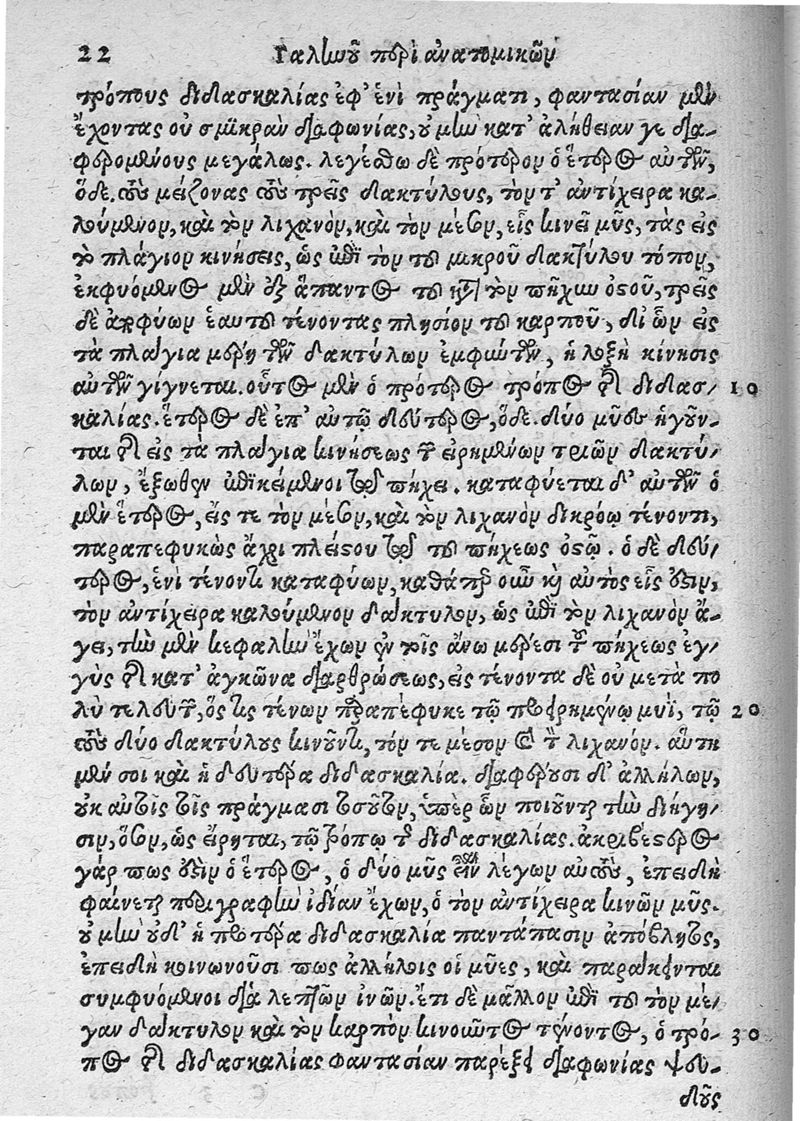 22 Γαλλωοῦ περὶ ἀνατομικῶν
τρόπους διδασκαλίας ἐφ' ἑνὶ πράγματι, φαντασίαν μὲν
ἔχοντας οὐ σμικρὰν διαφωνίας, οὐ μὴν κατ' ἀλήθειαν γε δια-
φερομένους μεγάλως. λεγέσθω δὲ πρότερον ὁ ἕτερος αὐτῶν,
ὅδε. τοὺς μείζονας τοὺς τρεῖς δακτύλους, τὸν τ' ἀντίχειρα κα-
λούμενον, καὶ τὸν λιχανὸν, καὶ τὸν μέσον, εἷς κινεῖ μῦς, τὰς εἰς
τὸ πλάγιον κινήσεις, ὡς ἐπὶ τὸν τοῦ μικροῦ δακτύλου τόπον,
ἐκφυόμενος μὲν ἐξ ἅπαντος τοῦ κατὰ τὸν πῆχυν ὀστοῦ, τρεῖς
δὲ ἀποφύων ἑαυτοῦ τένοντας πλησίον τοῦ καρποῦ, δι' ὧν εἰς
τὰ πλάγια μέρη τῶν δακτύλων ἐμφύντων, ἡ λοξὴ κίνησις
αὐτῶν γίγνεται. οὗτος μὲν ὁ πρότερος τρόπος τῆς διδασ- 10
καλίας. ἕτερος δὲ ἐπ' αὐτῷ δεύτερος, ὅδε. δύο μῦες ἡγοῦν-
ται τῆς εἰς τὰ πλάγια κινήσεως τῶν εἰρημένων τριῶν δακτύ-
λων, ἔξωθεν ἐπικείμενοι τῷ πήχει. καταφύεται δ' αὐτῶν ὁ
μὲν ἕτερος, εἴς τε τὸν μέσον, καὶ τὸν λιχανὸν δικρόῳ τένοντι,
παραπεφυκὼς ἄχρι πλείστου τῷ τοῦ πήχεως ὀστῷ. ὁ δὲ δεύ-
τερος, ἑνὶ τένοντι καταφύων, καθάπερ οὖν καὶ αὐτὸς εἷς ἐστιν,
τὸν ἀντίχειρα καλούμενον δάκτυλον, ὡς ἐπὶ τὸν λιχανὸν ἄ-
γει, τὴν μὲν κεφαλὴν ἔχων ἐν τοῖς ἄνω μέρεσι τοῦ πήχεως ἐγ-
γὺς τῆς κατ' ἀγκῶνα διαρθρώσεως, εἰς τένοντα δὲ οὐ μετὰ πο
λὺ τελευτῶν, ὅς τις τένων παραπέφυκε τῷ προειρημένῳ μυῒ, τῷ 20
τοὺς δύο δακτύλους κινοῦντι, τόν τε μέσον καὶ τὸν λιχανόν. αὕτη
μέν σοι καὶ ἡ δευτέρα διδασκαλία. διαφέρουσι δ' ἀλλήλων,
οὐκ αὐτοῖς τοῖς πράγμασι τοσοῦτον, ὑπὲρ ὧν ποιοῦνται τὴν διήγη-
σιν, ὅσον, ὡς εἴρηται, τῷ τρόπῳ τῆς διδασκαλίας. ἀκριβέστερος
γάρ πως ἐστὶν ὁ ἕτερος, ὁ δύο μῦς εἶναι λέγων αὐτοὺς, ἐπειδὴ
φαίνεται περιγραφὴν ἰδίαν ἔχων, ὁ τὸν ἀντίχειρα κινῶν μῦς.
οὐ μὴν οὐδ' ἡ προτέρα διδασκαλία παντάπασιν ἀπόβλητος,
ἐπειδὴ κοινωνοῦσι πως ἀλλήλοις οἱ μῦες, καὶ παράκεινται
συμφυόμενοι διὰ λεπτῶν ἰνῶν. ἔτι δὲ μᾶλλον ἐπὶ τοῦ τὸν μέ-
γαν δάκτυλον καὶ τὸν καρπὸν κινοῦντος τένοντος, ὁ τρό- 30
πος τῆς διδασκαλίας φαντασίαν παρέξει διαφωνίας ψευ-
δοῦς